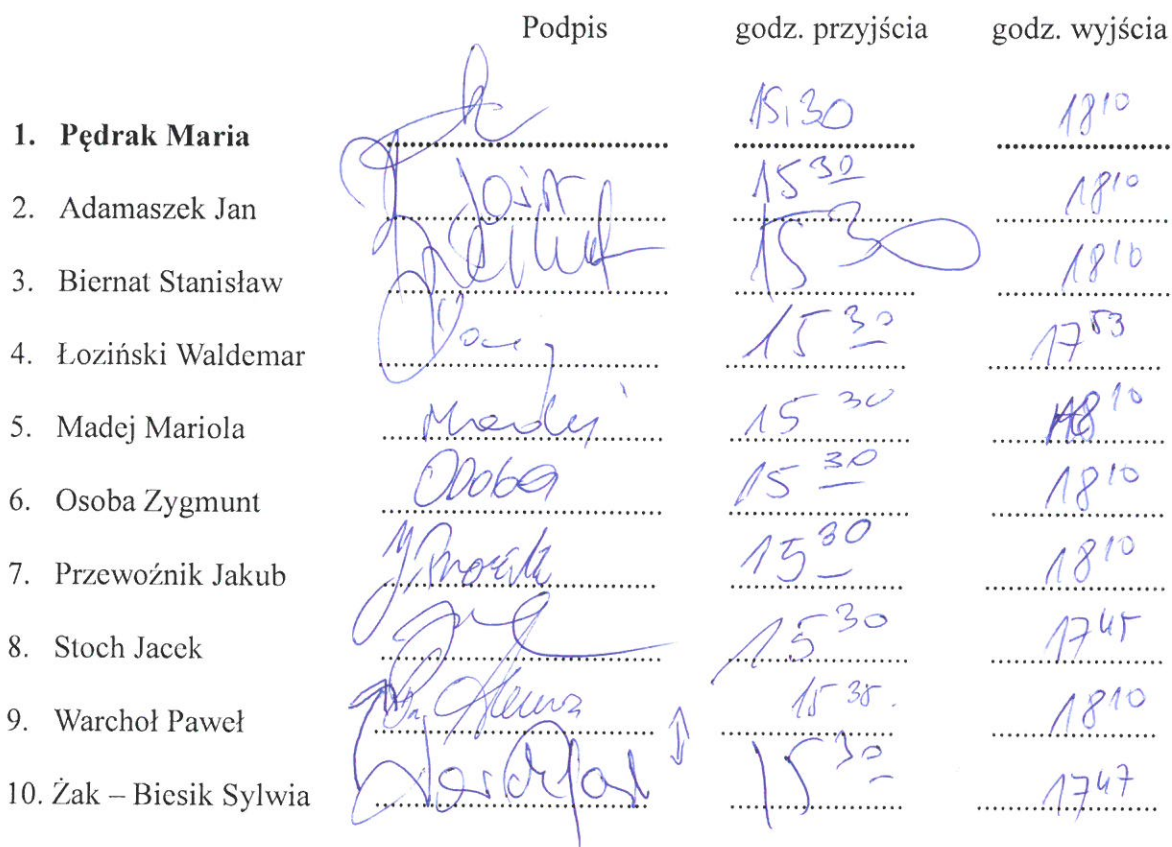 Podpis godz. przyjścia godz. wyjścia
1. Pędrak Maria 15,30 18¹⁰
2. Adamaszek Jan 15³⁰ 18¹⁰
3. Biernat Stanisław 15³⁰ 18¹⁰
4. Łoziński Waldemar 15³⁰ 17⁵³
5. Madej Mariola Madej 15³⁰ 18¹⁰
6. Osoba Zygmunt Osoba 15³⁰ 18¹⁰
7. Przewoźnik Jakub 15³⁰ 18¹⁰
8. Stoch Jacek 15³⁰ 17⁴⁵
9. Warchoł Paweł 15³⁵. 18¹⁰
10. Żak – Biesik Sylwia 15³⁰ 17⁴⁷